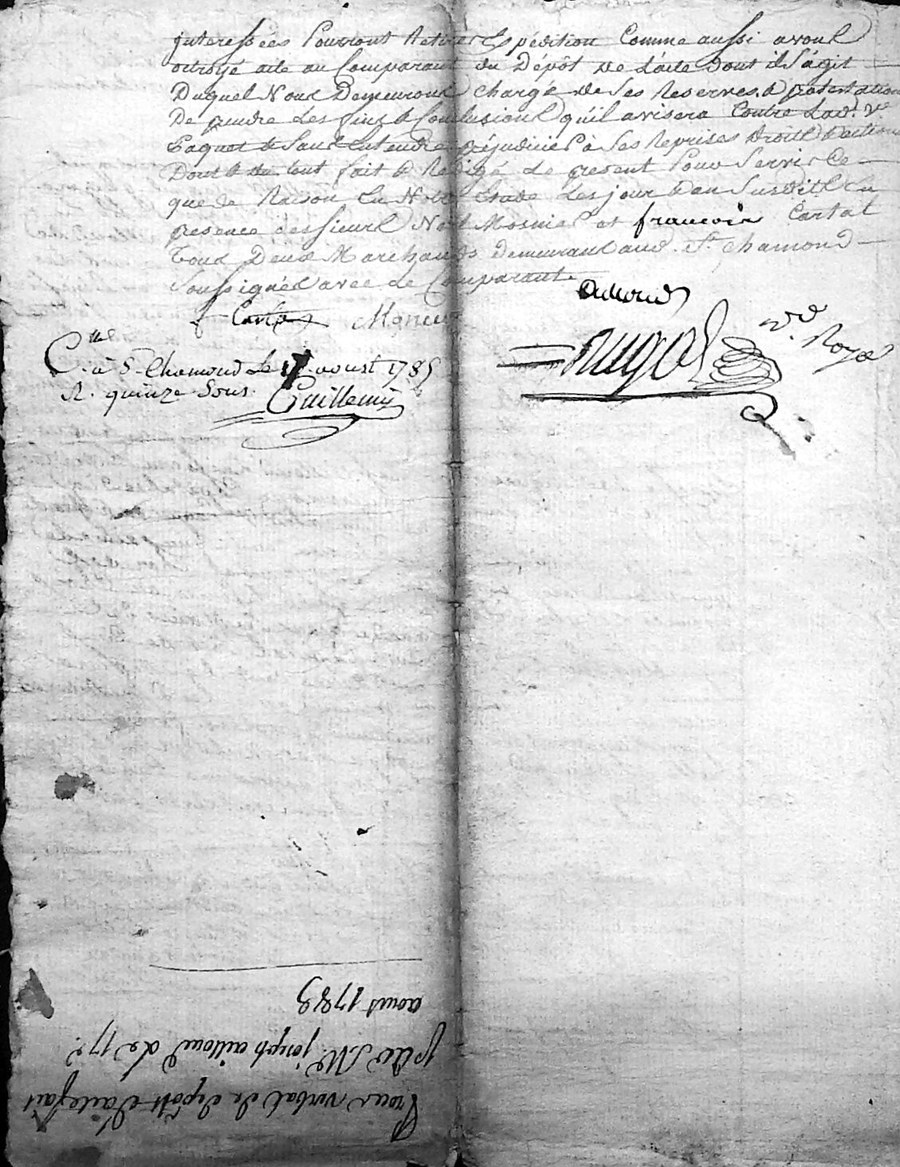 interessées Pourront Retirer Expédition Comme aussi avons
octroyé acte au Comparant du Dépôt de L'acte Dont il s'agit
Duquel Nous Demeurons Chargé de ses Reserves & protestations
De prendre Les fins & Conclusions qu'il avisera Contre Lad.e v.e
Paquet & Sans Entendre préjudicier à ses Reprises Droits & actions
Dont & du tout fait & Rédigé Le present Pour Servir Ce
que de Raison En Notre Etude Les jour & an Susdits En
presence des sieurs Noël Mosnier et francois Cartal
Tous Deux Marchands demeurant aud. St. Chamond
Soussignés avec Le Comparant
ailloud
Cartal Mosnier
n.re Royal
C.lle à St. Chamond Le 17 aoust 1785
R. quinze Sous. Guillemin
Procès verbal de dépôt d'acte fait
par S.r M.e joseph ailloud le 17 e.
aoust 1785